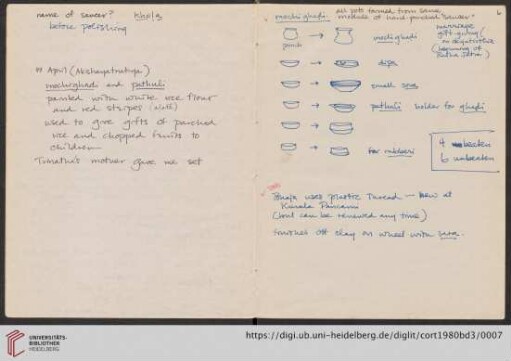 name of saucer? Khola
before polishing
April (Akshayatrutiya)
mochighadi and pathuli
painted with white rice flour
and red stripes
used to give gifts of parched
rice and chopped fruits to
children
mother gave me set
mochighadi.
all pots turned from same
of hand-punched "saucer"
6
punch
mochighadi
marriage
gift-giving
(beginning of
dipa
small sara
pathuli holder for ghadi
for
4 beaten
6 unbeaten
uses plastic thread — new at
(but can be renewed any time)
finishes off clay on wheel with
UNIVERSITÄTS-
BIBLIOTHEK
HEIDELBERG
https://digi.ub.uni-heidelberg.de/diglit/cort1980bd3/0007